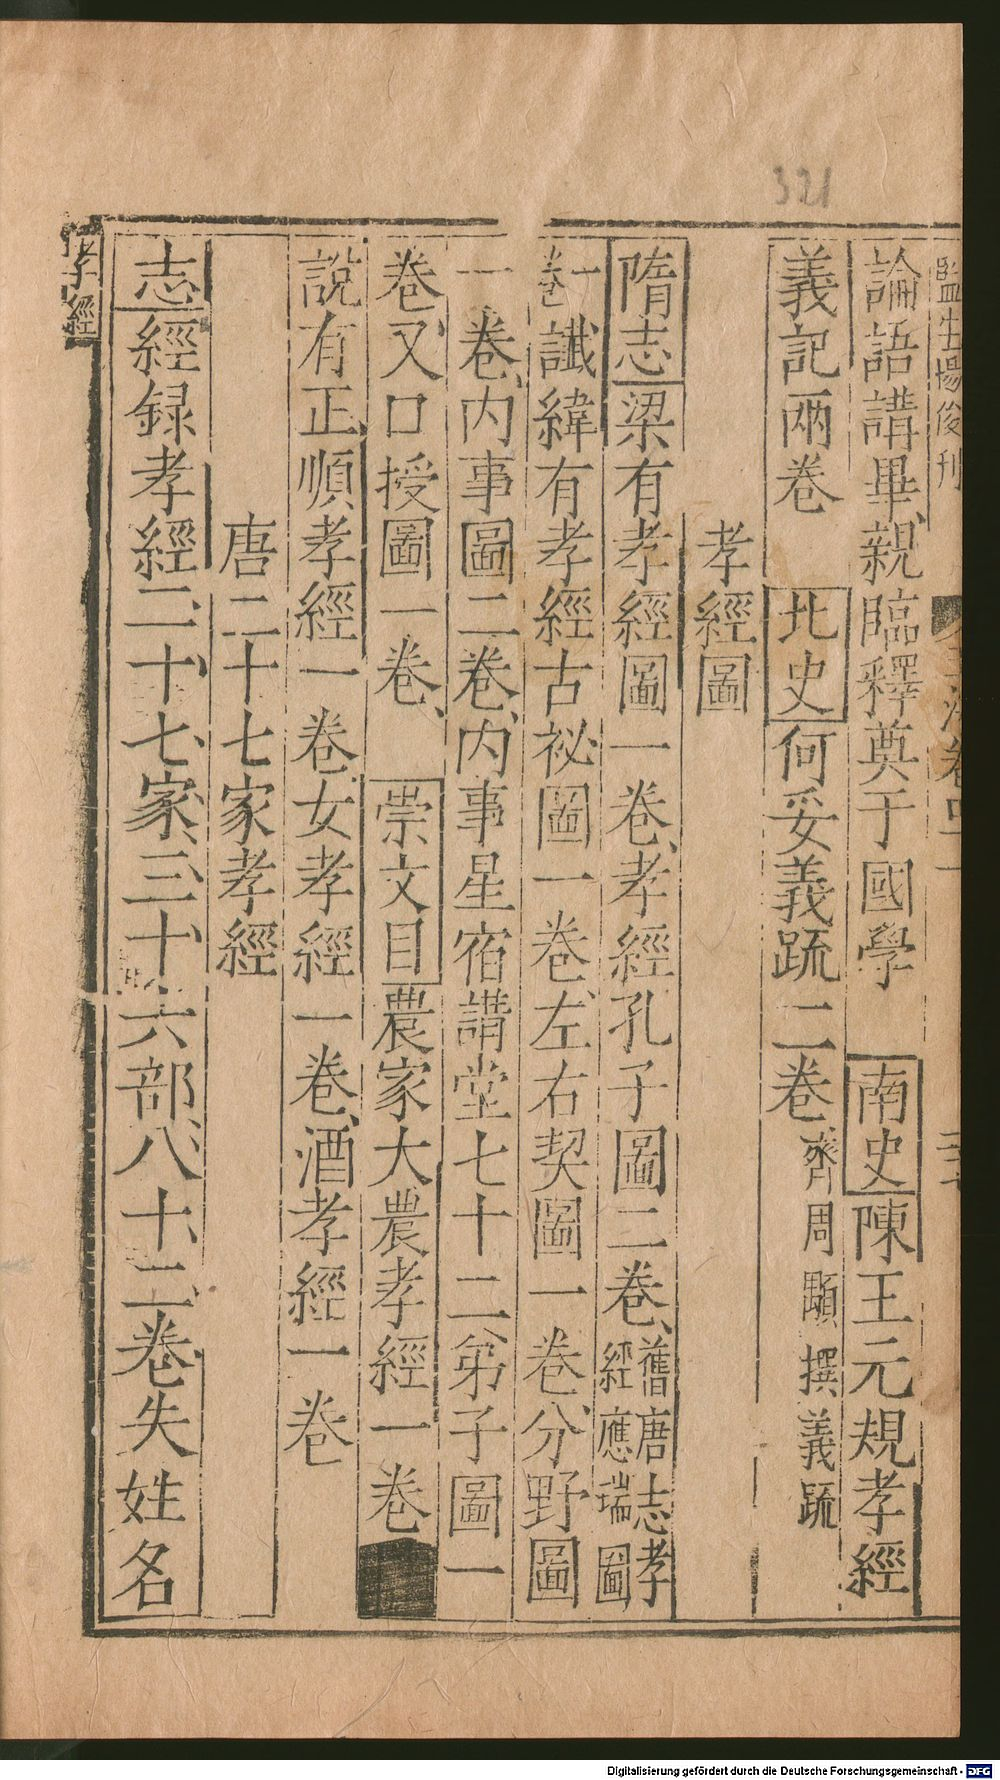 321
監生楊俊刊
論語講畢親臨釋奠于國學　南史陳王元規孝經
義記兩卷　北史何妥義疏二卷齊周顒撰義疏
孝經圖
隋志梁有孝經圖一卷孝經孔子圖二卷舊唐志孝
經應瑞圖
一卷讖緯有孝經古祕圖一卷左右契圖一卷分野圖
一卷內事圖二卷內事星宿講堂七十二弟子圖一
卷又口授圖一卷　崇文目農家大農孝經一卷
說有正順孝經一卷女孝經一卷酒孝經一卷
唐二十七家孝經
志經録孝經二十七家三十六部八十二卷失姓名
孝經
Digitalisierung gefördert durch die Deutsche Forschungsgemeinschaft - DFG